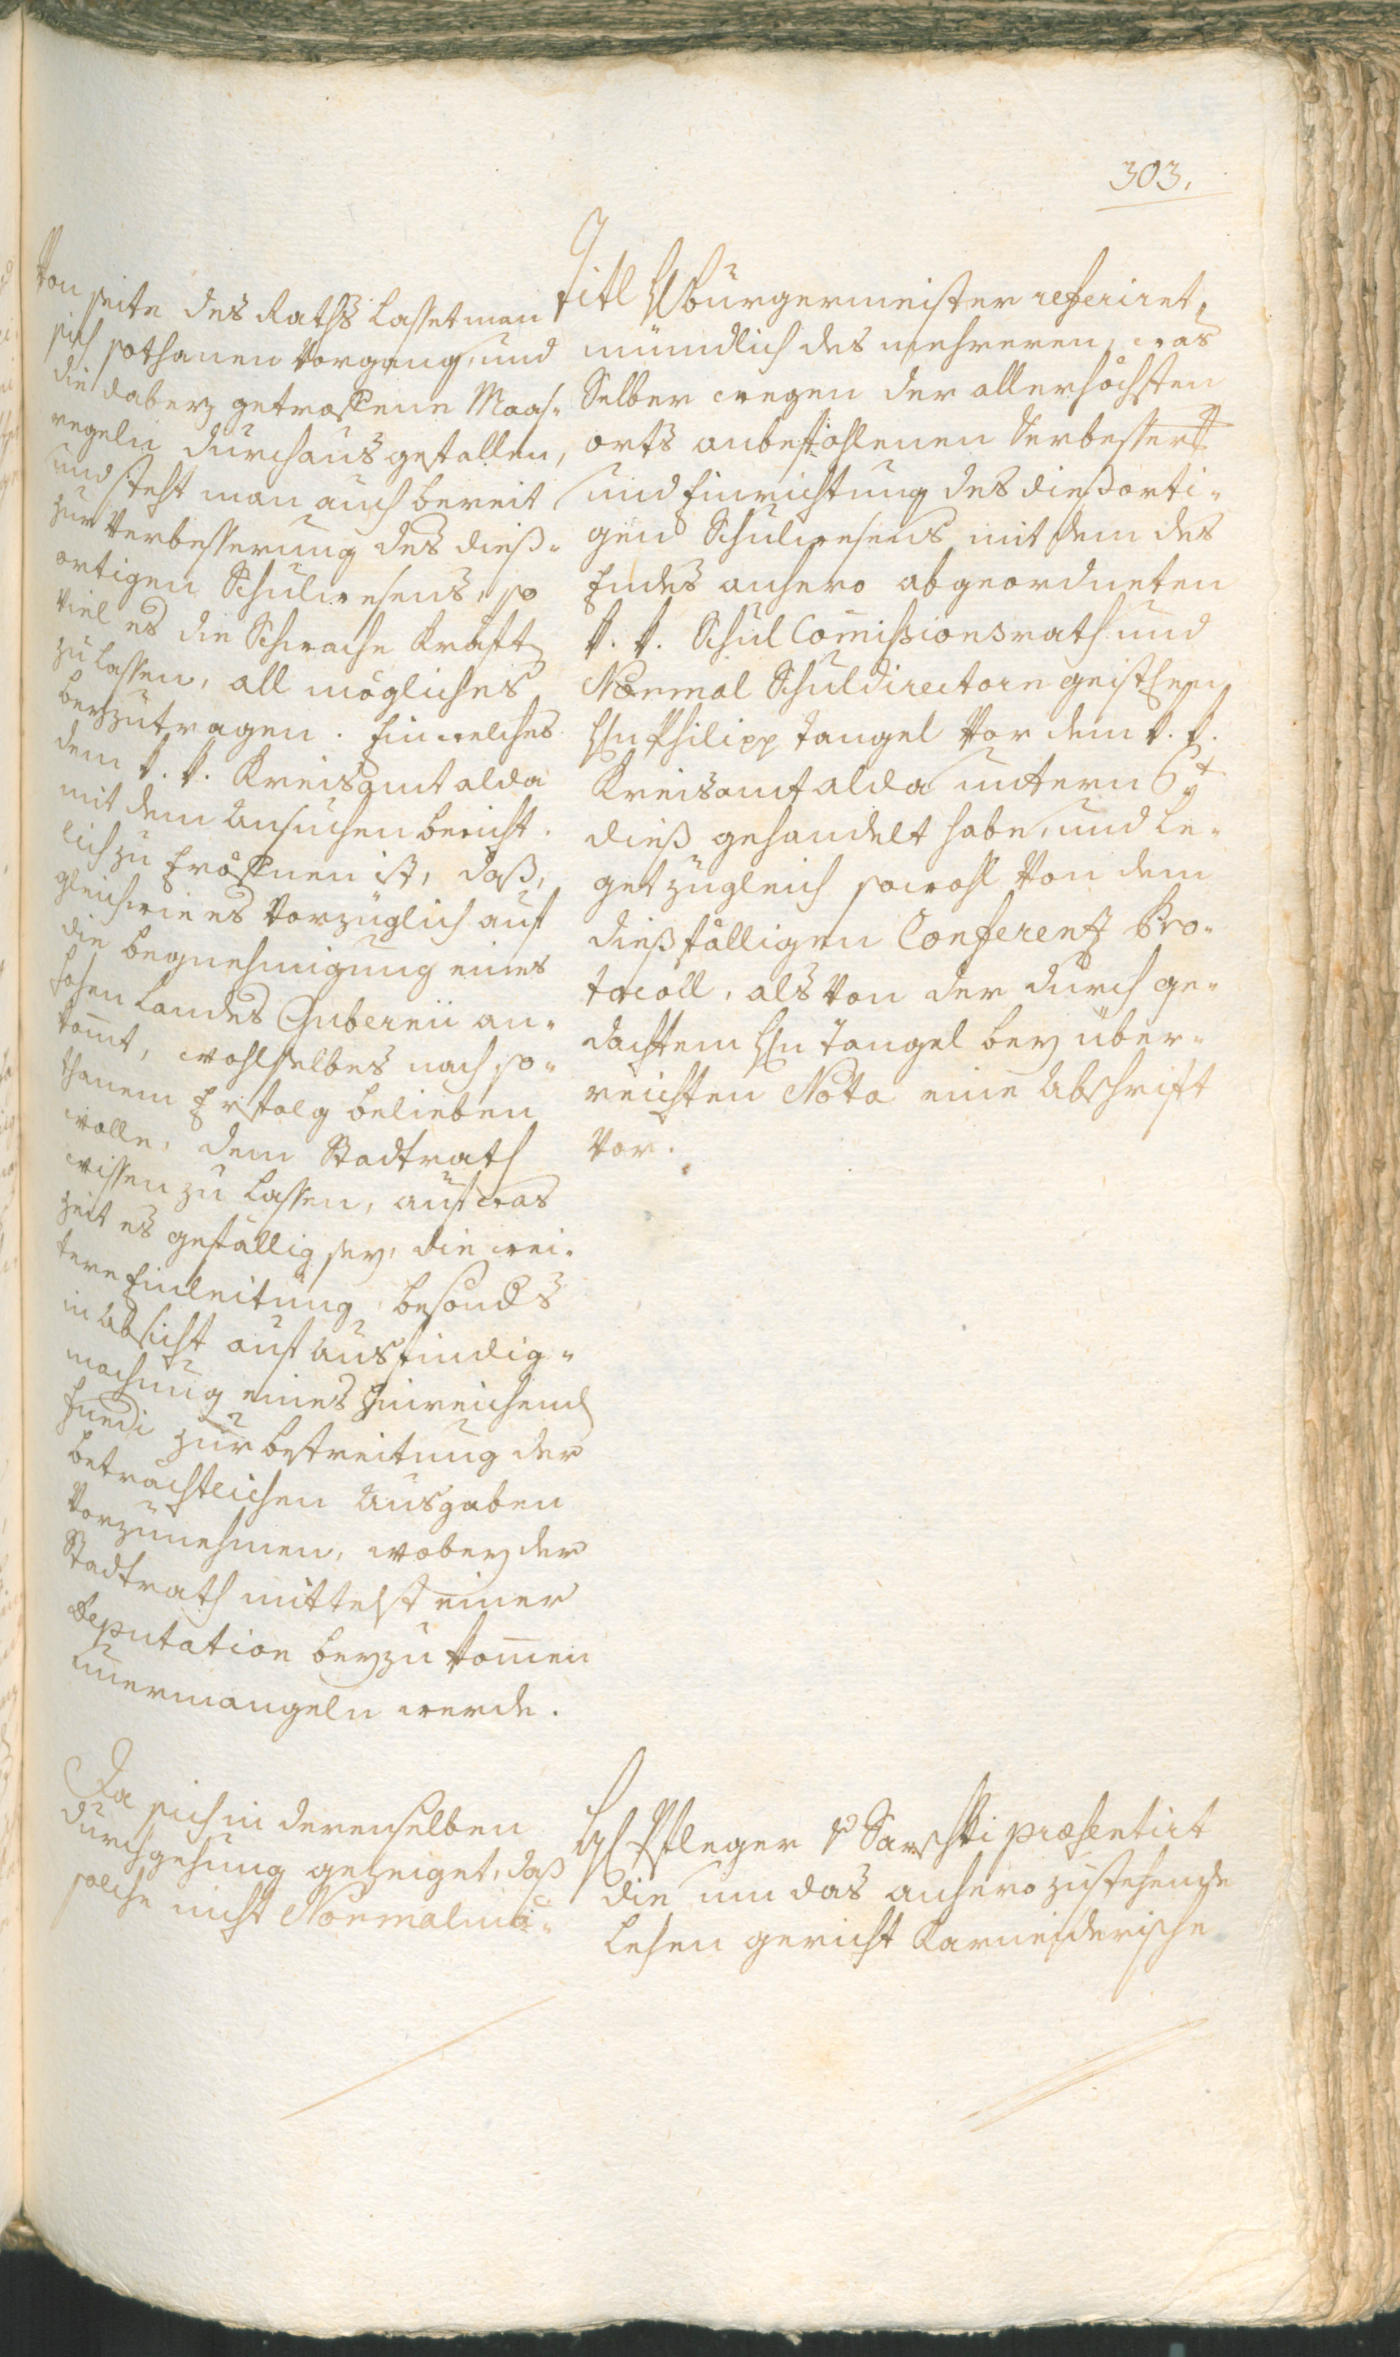 303.
Von seite des Raths lasset man
sich sothanen Vorgang, und
die dabey getroffene Maas-
regeln durchaus gefallen,
und steht man auch bereit
zur Verbesserung des dieß-
ortigen Schulwesens, so
viel es die Schwache Kräfte
zulassen, all mögliches
beyzutragen. Einwelches
dem k. k. Kreisamt alda
mit dem Ansuchen bericht-
lich zu Eröffnen ist, daß,
gleichwie es Vorzüglich auf
die begnehmigung eines
hohen Landes Gubernii an-
komt, wohlselbes nach so-
thanem Erfolg belieben
wolle, dem Stadtrath
wissen zu lassen, auf was
zeit es gefällig sey, die wei-
tere Einleitung, besonds
in Absicht auf Ausfindig-
machung eines hinreichend
Fundi zur bestreitung der
beträchtlichen Ausgaben
Vorzunehmen, wobey der
Stadtrath mittelst einer
Deputation beyzukomen
unermangeln werde.
Da sich in derenselben
durchgehung gezeiget, daß
solche nicht Normalmä-
Titl H Bürgermeister referiret,
mündlich des mehreren, was
Selber wegen der allerhöchsten
orts anbefohlenen Verbesserg
und Einrichtung des dießorti-
gen Schulwesens mit dem des
Endes anhero abgeordneten
k. k. Schul Comissionsrath und
Normal Schuldirectorn geistl
Hn Philipp Tangel Vor dem k. k.
Kreisamt alda untern 6t
dieß gehandelt habe, und le-
get zugleich sowohl Von dem
dießfälligen Conferenz Pro-
tocoll, als Von der durch ge-
dachtem Hn Tangel bey über-
reichten Nota eine Abschrift
Vor.
H Pfleger v Sarchti præsentirt
die um das anhero zustehende
Lehen gericht Karneiderische